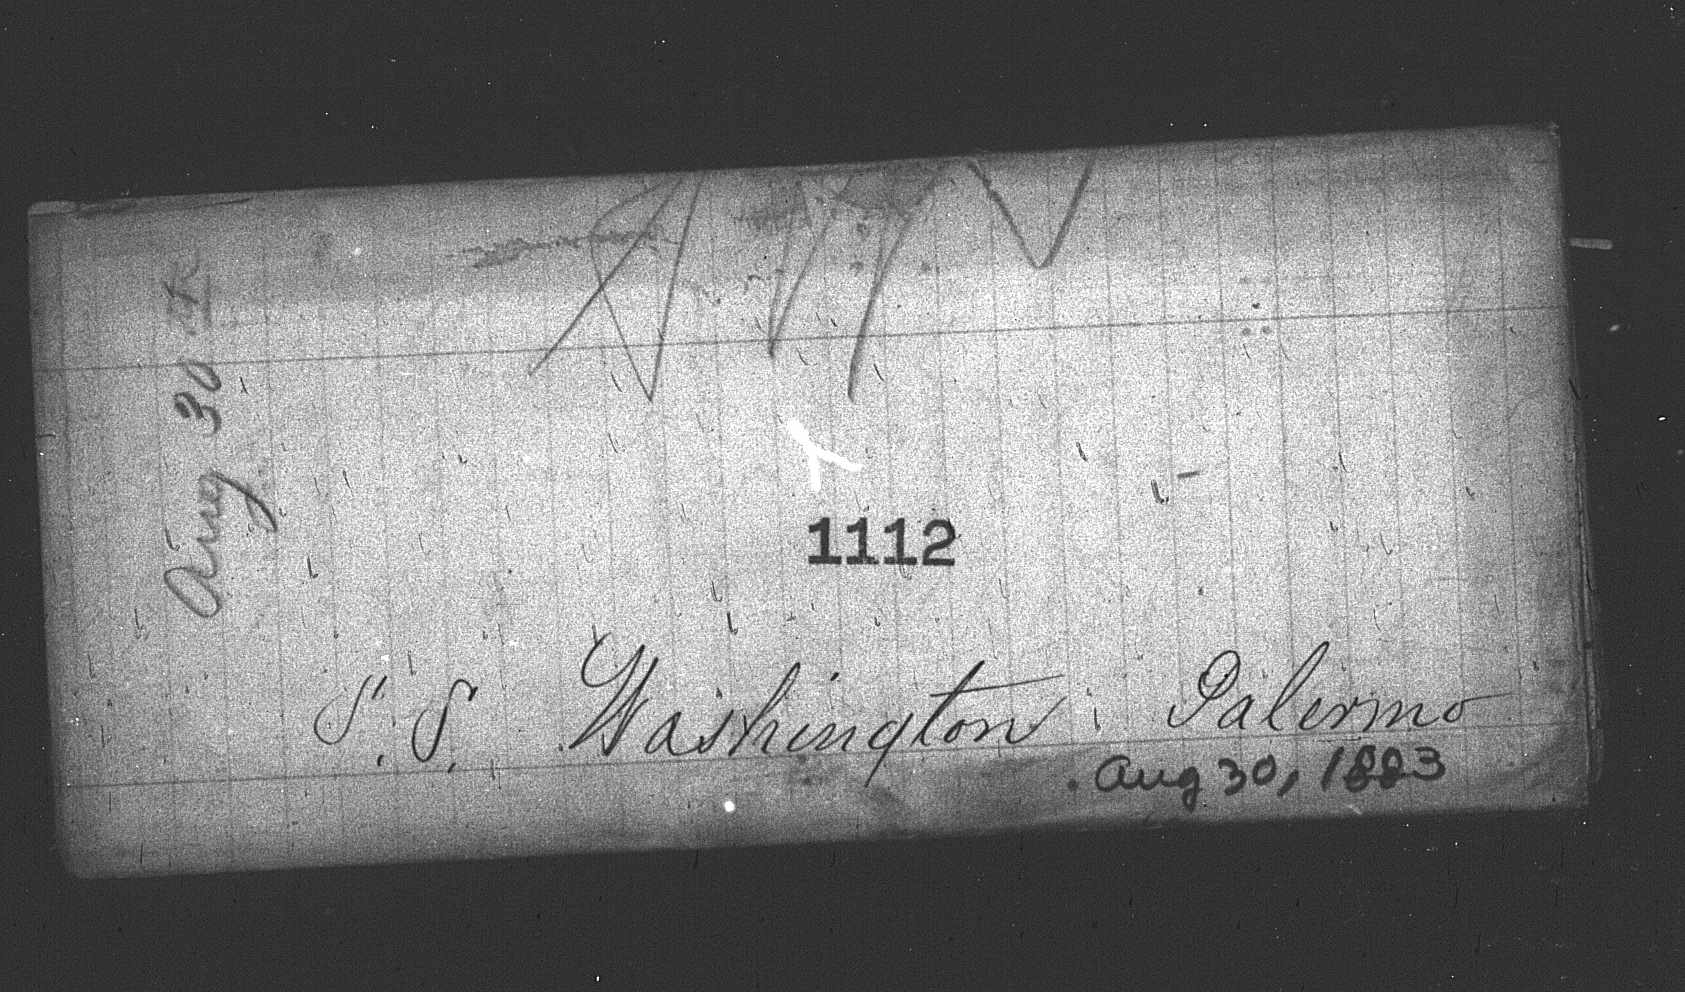 Aug 30th
1112
S. S. Washington. Palermo
Aug 30, 1883